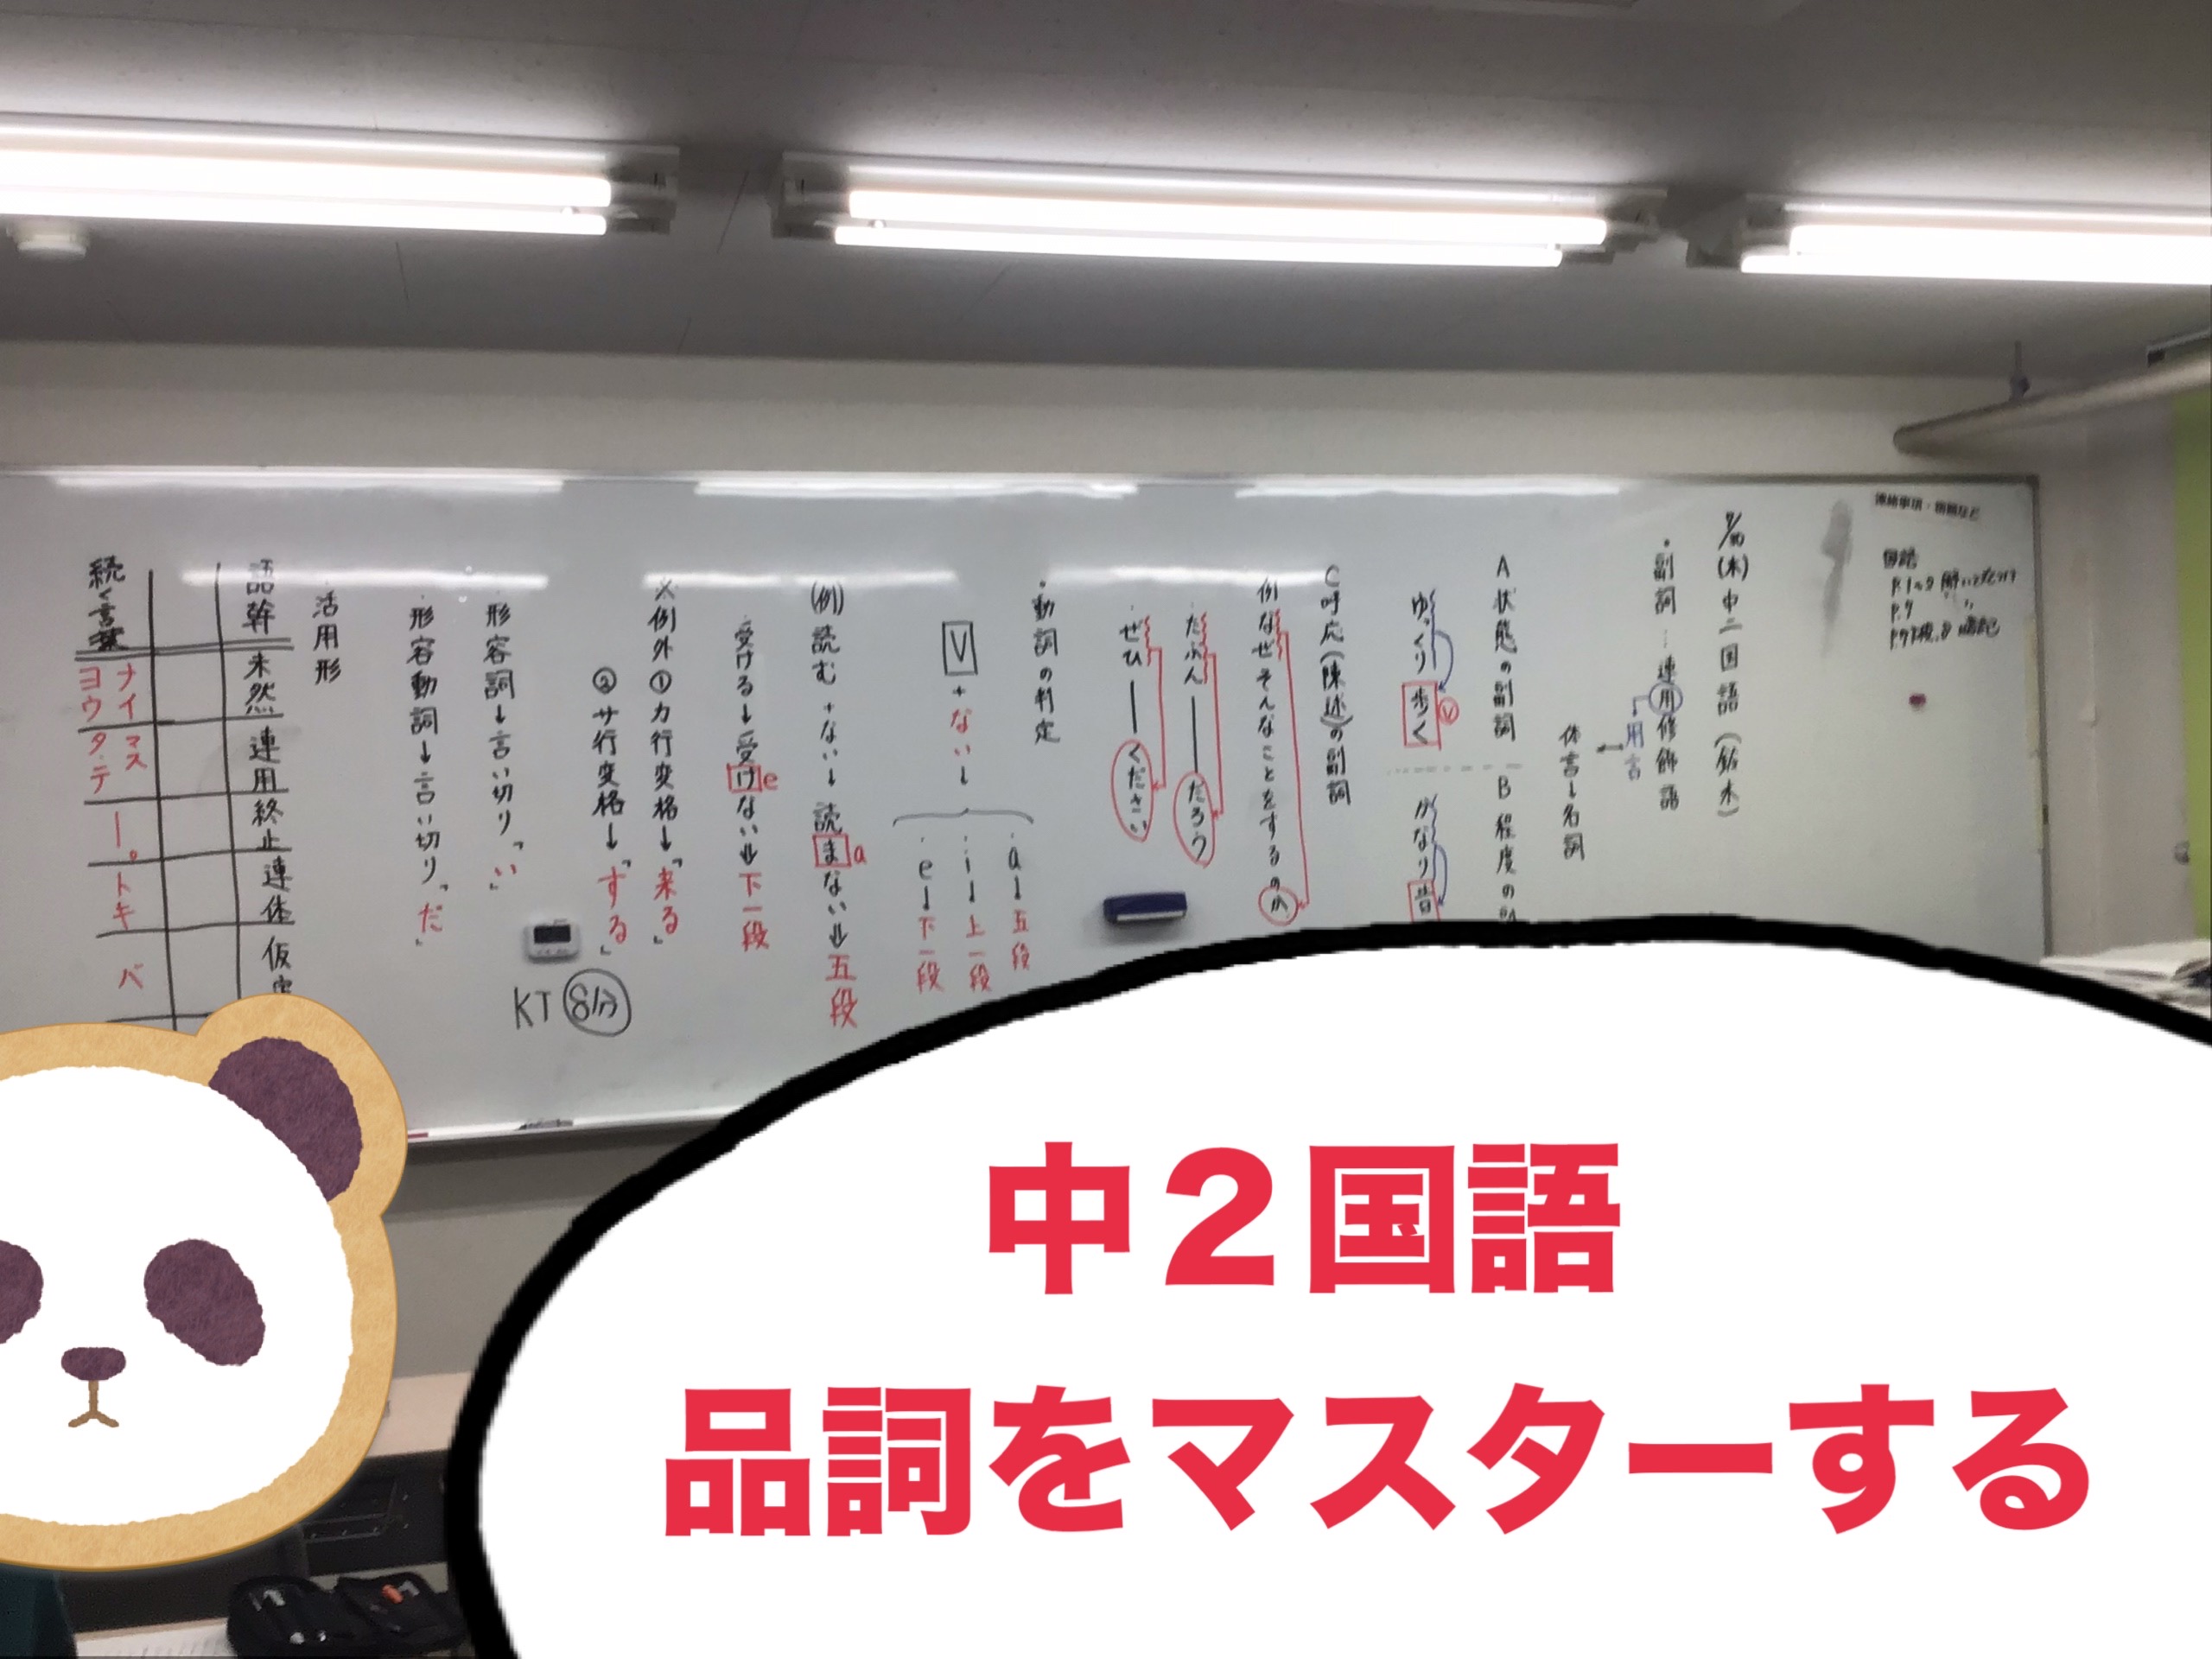 連絡事項・宿題など
国語
7/30(木)中二国語(鈴木)
・副詞…連用修飾語
用言
体言→名詞
A 状態の副詞
B 程度の
ゆっくり歩く
V
かなり昔
C 呼応(陳述)の副詞
例なぜそんなことをするのか
・たぶん――だろう
・ぜひ――ください
・動詞の判定
V+ない→
・a→五段
・i→上一段
・e→下一段
(例)読む+ない→読まない⇒五段
a
受ける→受けない⇒下一段
e
※例外①カ行変格→「来る」
②サ行変格→「する」
KT 8分
形容詞→言い切り「い」
形容動詞→言い切り「だ」
活用形
語幹 未然 連用 終止 連体 仮定
続く言葉 ナイ ヨウ マス タ・テ ー。 トキ バ
中2国語
品詞をマスターする